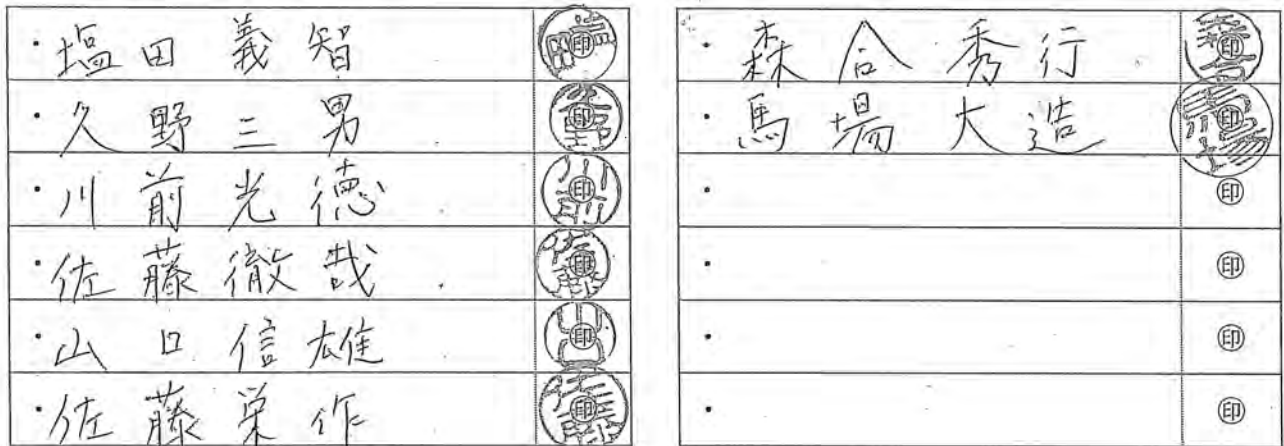 ・塩田義智 ㊞
・久野三男 ㊞
・川前光徳 ㊞
・佐藤徹哉 ㊞
・山口信雄 ㊞
・佐藤栄作 ㊞
・森合秀行 ㊞
・馬場大造 ㊞
・ ㊞
・ ㊞
・ ㊞
・ ㊞